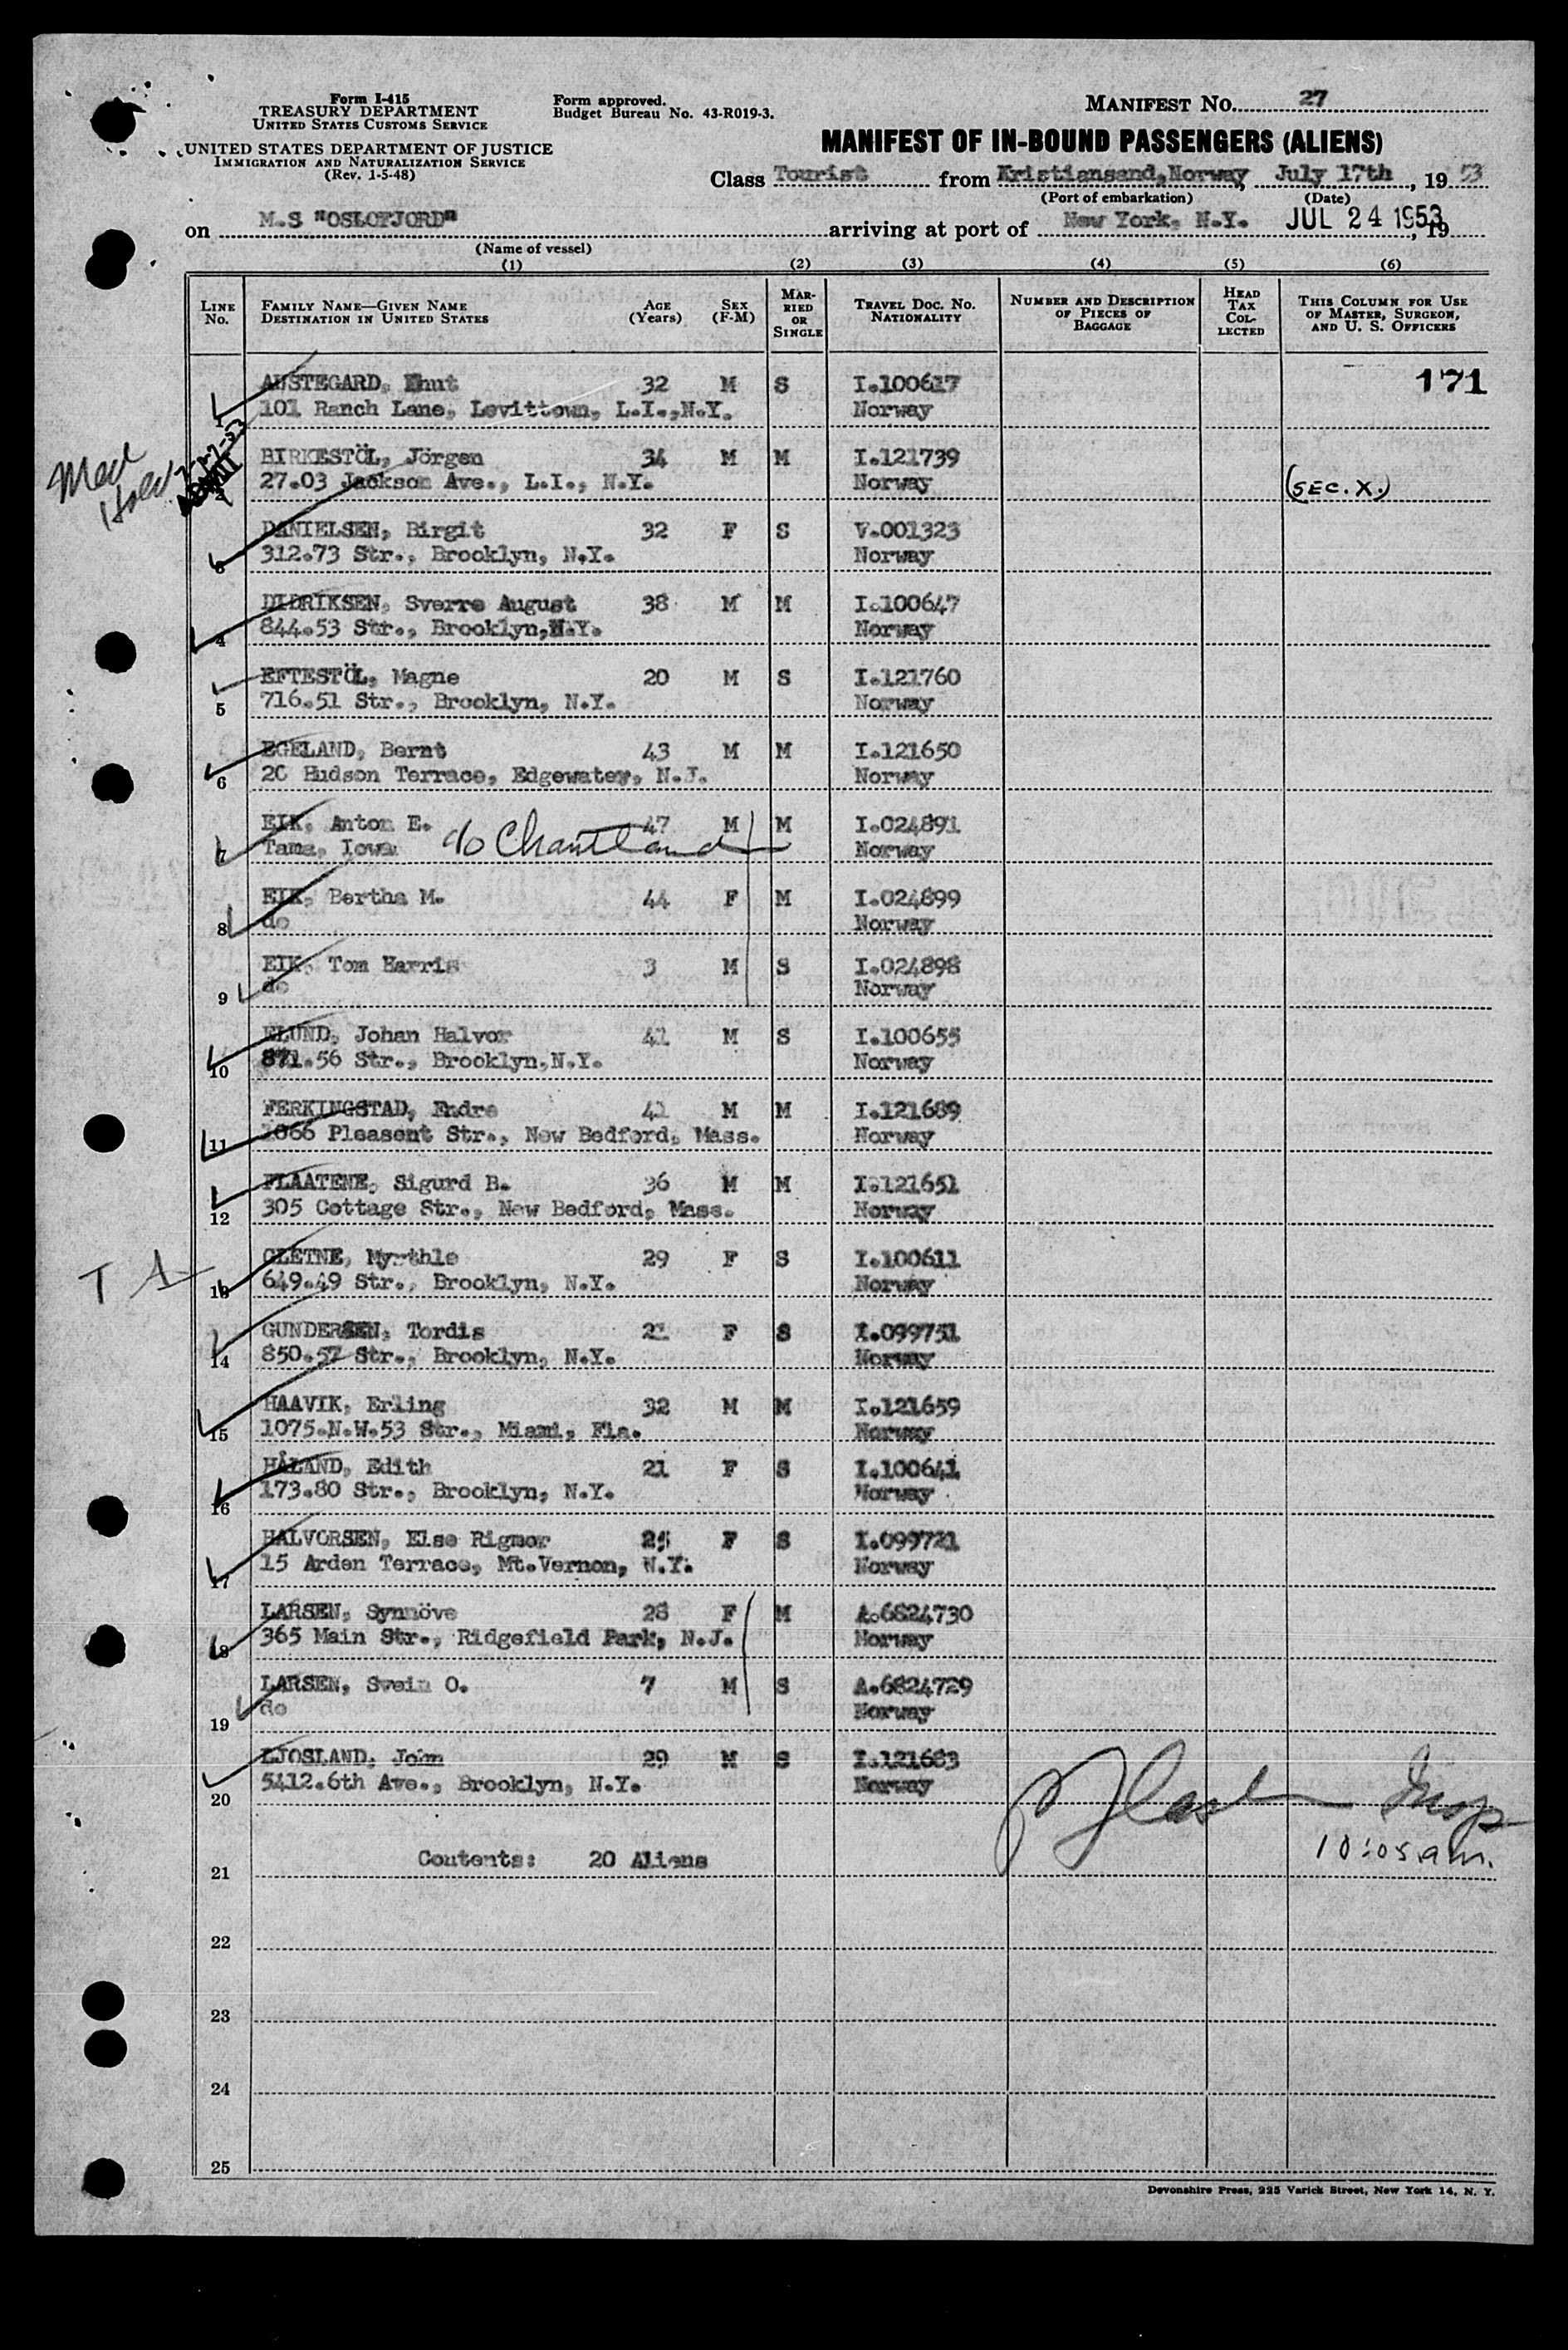 Form I-415
TREASURY DEPARTMENT
UNITED STATES CUSTOMS SERVICE
UNITED STATES DEPARTMENT OF JUSTICE
IMMIGRATION AND NATURALIZATION SERVICE
(Rev. 1-5-48)
Form approved.
Budget Bureau No. 43-R019-3.
MANIFEST NO. 27
MANIFEST OF IN-BOUND PASSENGERS (ALIENS)
Class Tourist from Kristiansand, Norway July 17th, 1953
(Port of embarkation) (Date)
on M.S "OSLOFJORD" arriving at port of New York, N.Y. JUL 24 1953, 19
(Name of vessel)
(1) (2) (3) (4) (5) (6)
LINE NO. FAMILY NAME—GIVEN NAME DESTINATION IN UNITED STATES AGE (Years) SEX (F-M) MARRIED OR SINGLE TRAVEL DOC. NO. NATIONALITY NUMBER AND DESCRIPTION OF PIECES OF BAGGAGE HEAD TAX COLLECTED THIS COLUMN FOR USE OF MASTER, SURGEON, AND U. S. OFFICERS
171
1 AUSTEGARD, Knut 32 M S I.100617
101 Ranch Lane, Levittown, L.I.,N.Y. Norway
Med Hold
ADMIT
2 BIRKESTÖL, Jörgen 34 M M I.121739
27.03 Jackson Ave., L.I., N.Y. Norway (SEC. X.)
3 DANIELSEN, Birgit 32 F S V.001323
312.73 Str., Brooklyn, N.Y. Norway
4 DIDRIKSEN, Sverre August 38 M M I.100647
844.53 Str., Brooklyn,N.Y. Norway
5 EFTESTÖL, Magne 20 M S I.121760
716.51 Str., Brooklyn, N.Y. Norway
6 EGELAND, Bernt 43 M M I.121650
20 Hudson Terrace, Edgewater, N.J. Norway
7 EIK, Anton E. 47 M M I.024891
Tama, Iowa c/o Chantland Norway
8 EIK, Bertha M. 44 F M I.024899
do Norway
9 EIK, Tom Harris 3 M S I.024898
do Norway
10 ELUND, Johan Halvor 41 M S I.100655
871.56 Str., Brooklyn,N.Y. Norway
11 FERKINGSTAD, Endre 41 M M I.121689
1066 Pleasent Str., New Bedford, Mass. Norway
12 FLAATENE, Sigurd B. 36 M M I.121651
305 Cottage Str., New Bedford, Mass. Norway
T A
13 GLETNE, Myrthle 29 F S I.100611
649.49 Str., Brooklyn, N.Y. Norway
14 GUNDERSEN, Tordis 21 F S I.099751
850.57 Str., Brooklyn, N.Y. Norway
15 HAAVIK, Erling 32 M M I.121659
1075.N.W.53 Str., Miami, Fla. Norway
16 HÅLAND, Edith 21 F S I.100641
173.80 Str., Brooklyn, N.Y. Norway
17 HALVORSEN, Else Rigmor 25 F S I.099721
15 Arden Terrace, Mt.Vernon, N.Y. Norway
18 LARSEN, Synnöve 28 F M A.6824730
365 Main Str., Ridgefield Park, N.J. Norway
19 LARSEN, Svein O. 7 M S A.6824729
do Norway
20 LJOSLAND, John 29 M S I.121683
5412.6th Ave., Brooklyn, N.Y. Norway
Insp
10:05 a.m.
21 Contents: 20 Aliens
22
23
24
25
Devonshire Press, 225 Varick Street, New York 14, N. Y.